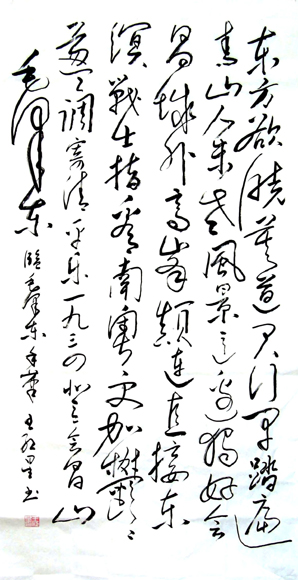 东方欲晓莫道君行早踏遍
青山人未老風景这边独好会
昌城外高峰颠连直接东
溟戰士指看南粤更加鬱〻
葱〻调寄清平乐一九三四会昌山
毛泽东
临毛泽东手笔 王星书